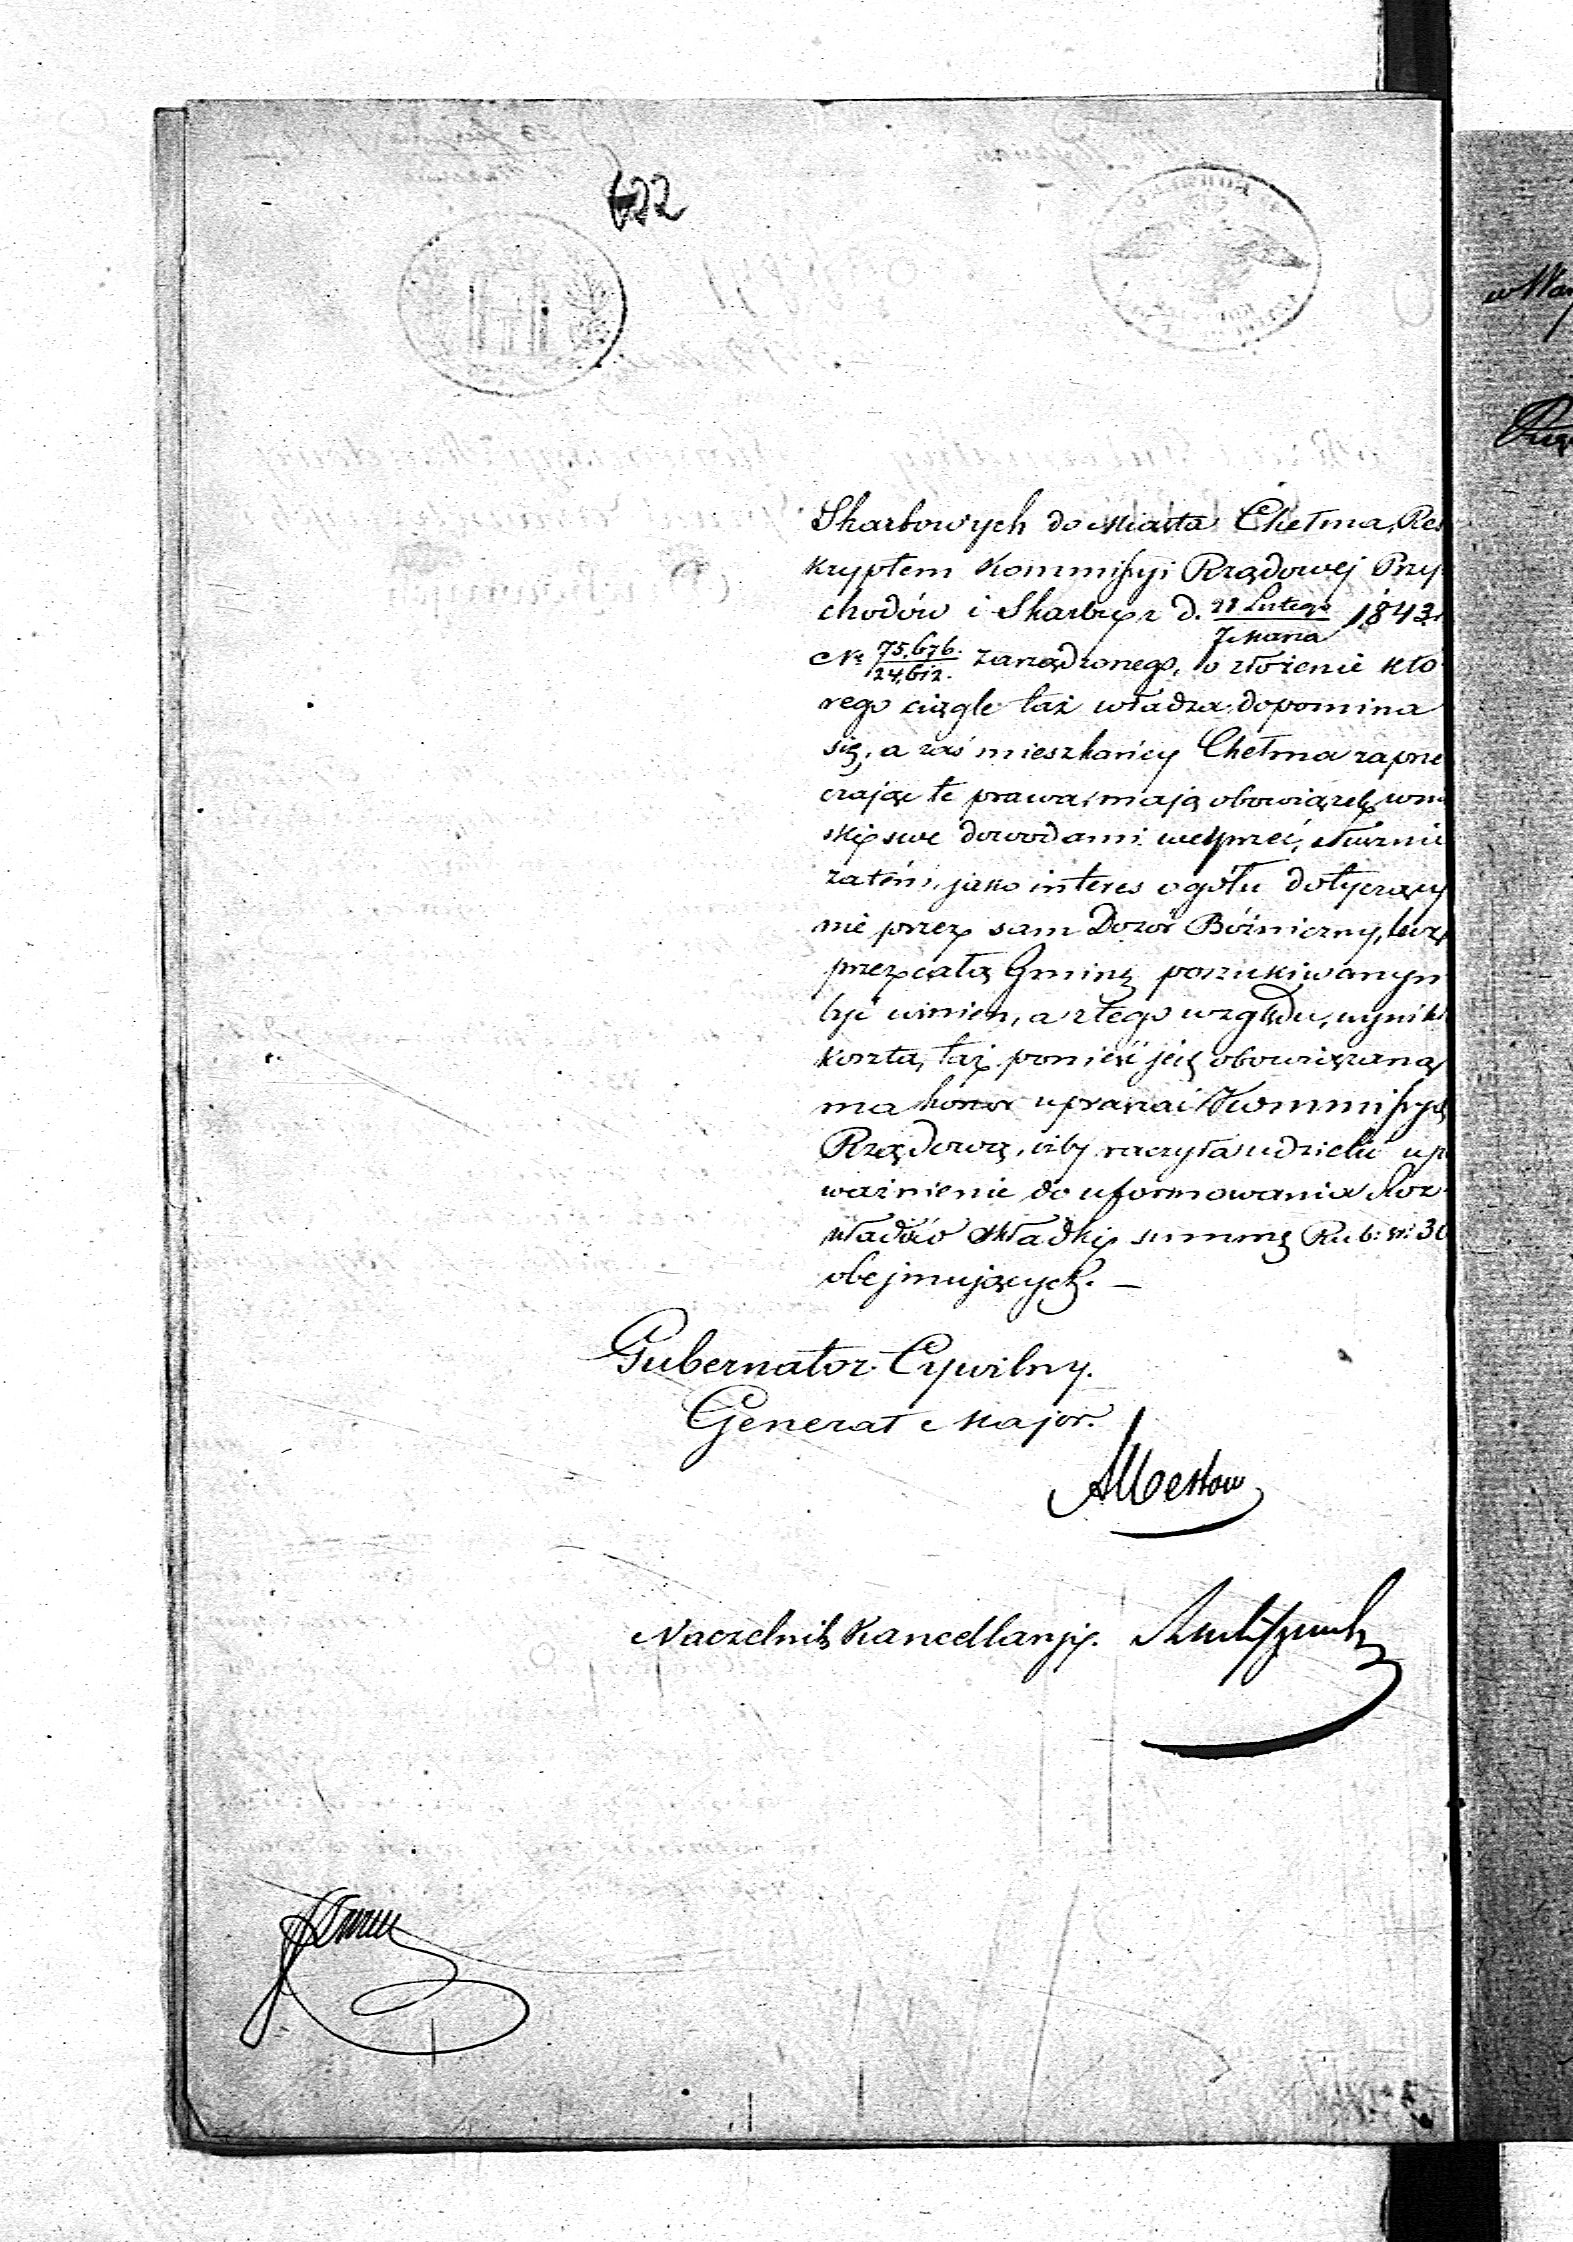 622
Skarbowych do Miasta Chełma, Res
kryptem Kommissyi Rządowej Przy
chodów i Skarbu z d. 28 Lutego / 7 Marca 1843 r
Nr 75,676. / 24,612. zarządzonego, o złożenie któ
rego ciągle taż władza dopomina
się, a zaś mieszkańcy Chełma zaprze
czając te prawa, mają obowiązek wnio
ski swe dowodami wesprzeć, słusznie
zatém, jako interes ogółu dotyczący
nie przez sam Dozór Bóżniczny, lecz
przez całą Gminę poszukiwanym
być winien, a z tego względu, wynikłe
koszta, taż ponieść jest obowiązaną
ma honor upraszać Kommissyą
Rządową, iżby raczyła udzielić upo
ważnienie do uformowania Roz
kładów składki summę Rub: sr: 30
obejmujących. —
Gubernator Cywilny.
Generał Major.
Naczelnik Kancellaryi.